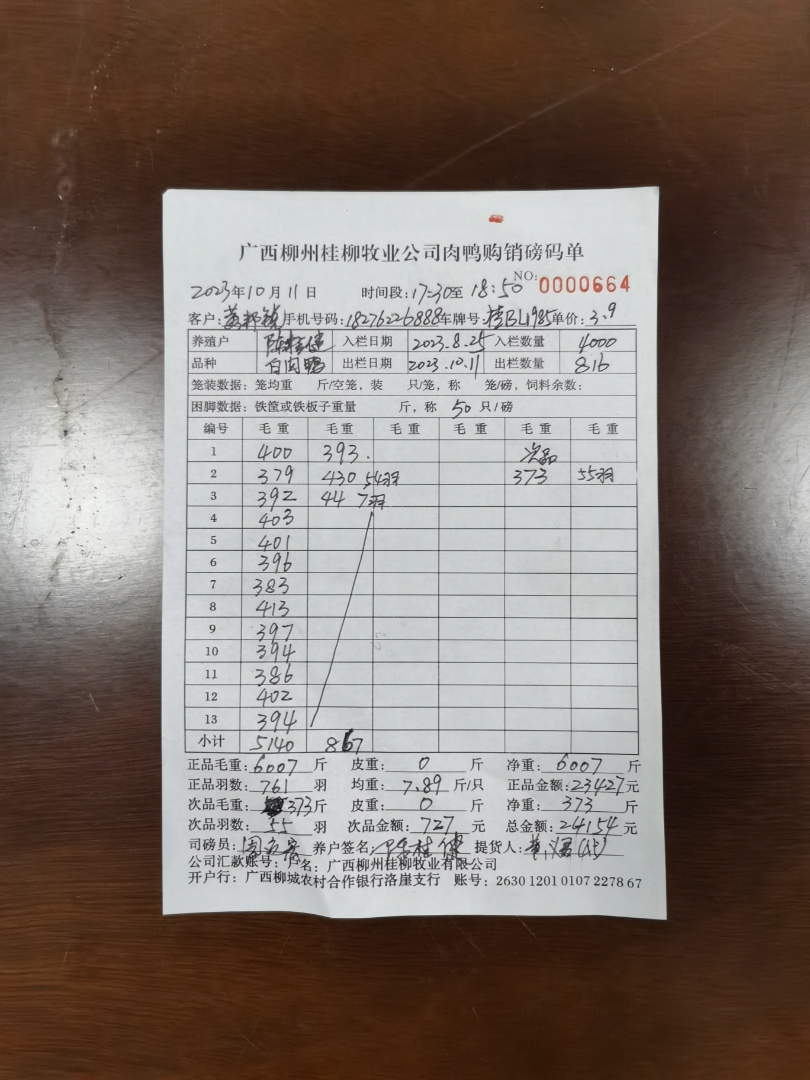 广西柳州桂柳牧业公司肉鸭购销磅码单
NO: 0000664
2023年10月11日 时间段:17:30至18:50
客户: 手机号码:18276226888车牌号:桂BL1985单价:3.9
养殖户 陈桂健 入栏日期 2023.8.25 入栏数量 4000
品种 白肉鸭 出栏日期 2023.10.11 出栏数量 816
笼装数据: 笼均重 斤/空笼, 装 只/笼, 称 笼/磅, 饲料余数:
困脚数据: 铁筐或铁板子重量 斤, 称 50 只/磅
编号 毛重 毛重 毛重 毛重 毛重 毛重
1 400 393. 次品
2 379 430 54羽 373 55羽
3 392 44 7羽
4 403
5 401
6 396
7 383
8 413
9 397
10 394
11 386
12 402
13 394
小计 5140 867
正品毛重:6007斤 皮重:0斤 净重:6007斤
正品羽数:761羽 均重:7.89斤/只 正品金额:23427元
次品毛重:373斤 皮重:0斤 净重:373斤
次品羽数:55羽 次品金额:727元 总金额:24154元
司磅员: 养户签名:陈桂健 提货人:
公司汇款账号: 户名: 广西柳州桂柳牧业有限公司
开户行: 广西柳城农村合作银行洛崖支行 账号: 2630 1201 0107 2278 67